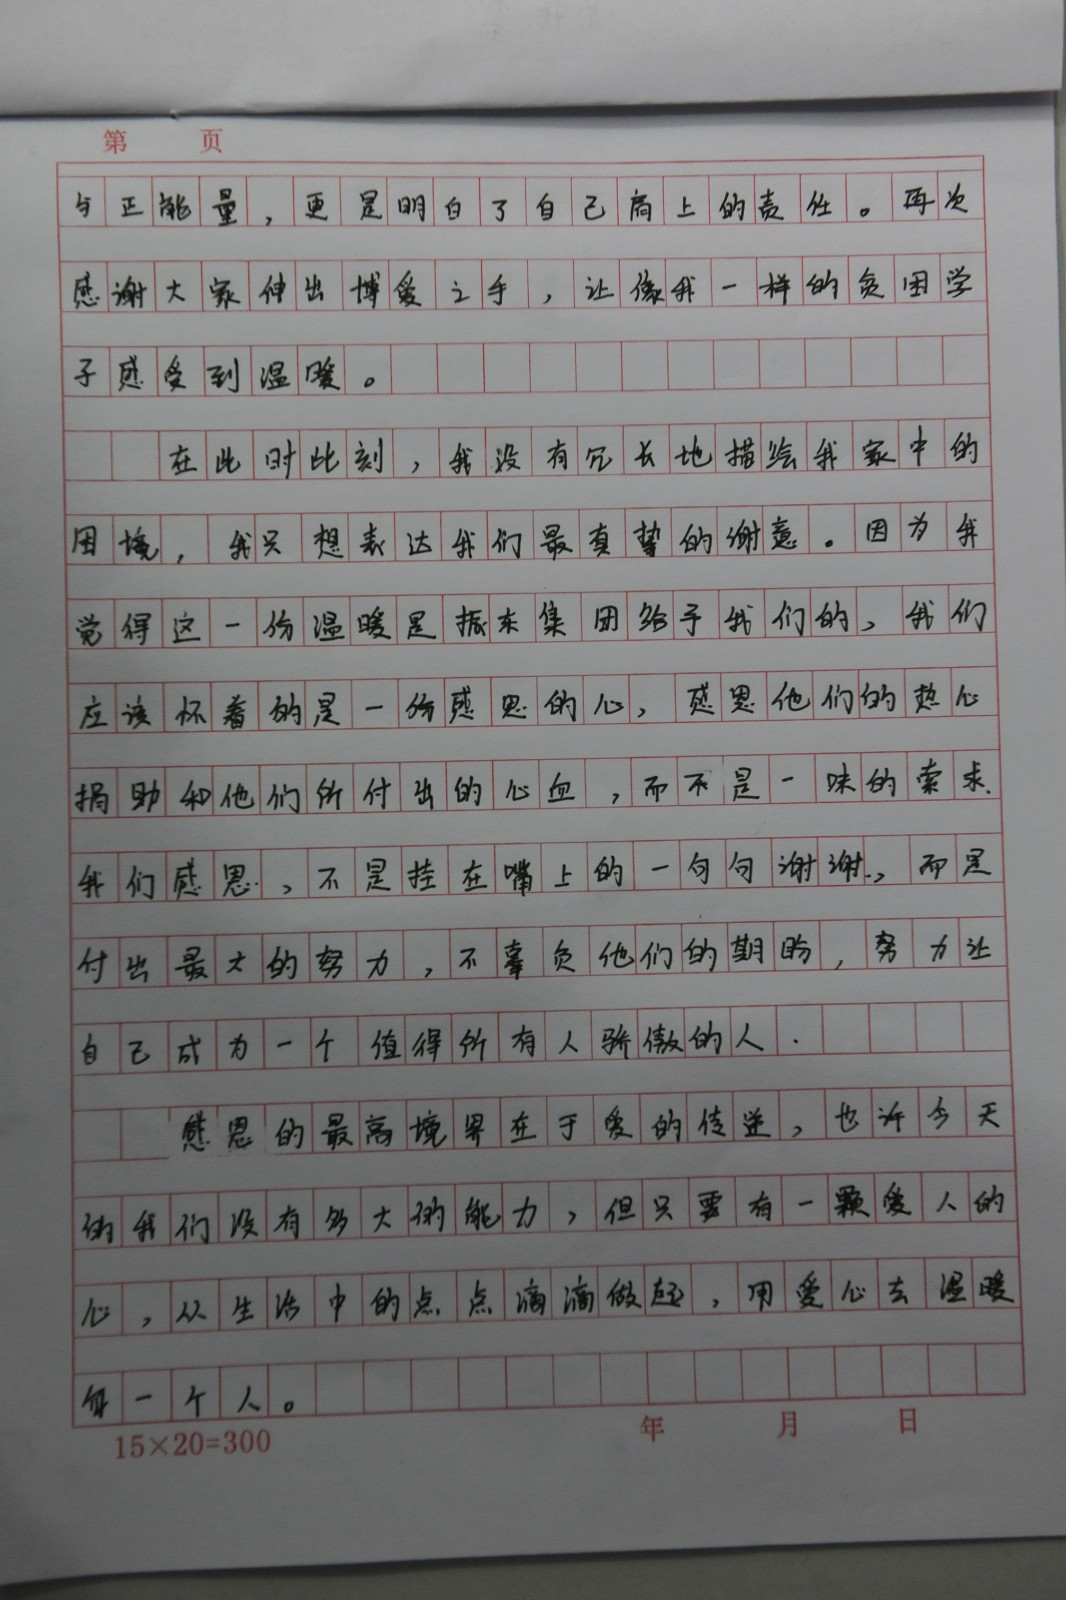 第 页
与正能量，更是明白了自己肩上的责任。再次
感谢大家伸出博爱之手，让像我一样的贫困学
子感受到温暖。
在此时此刻，我没有冗长地描绘我家中的
困境，我只想表达我们最真挚的谢意。因为我
觉得这一份温暖是振东集团给予我们的，我们
应该怀着的是一份感恩的心，感恩他们的热心
捐助和他们所付出的心血，而不是一味的索求.
我们感恩，不是挂在嘴上的一句句谢谢，而是
付出最大的努力，不辜负他们的期盼，努力让
自己成为一个值得所有人骄傲的人.
感恩的最高境界在于爱的传递，也许今天
的我们没有多大的能力，但只要有一颗爱人的
心，从生活中的点点滴滴做起，用爱心去温暖
每一个人。
15×20=300 年 月 日